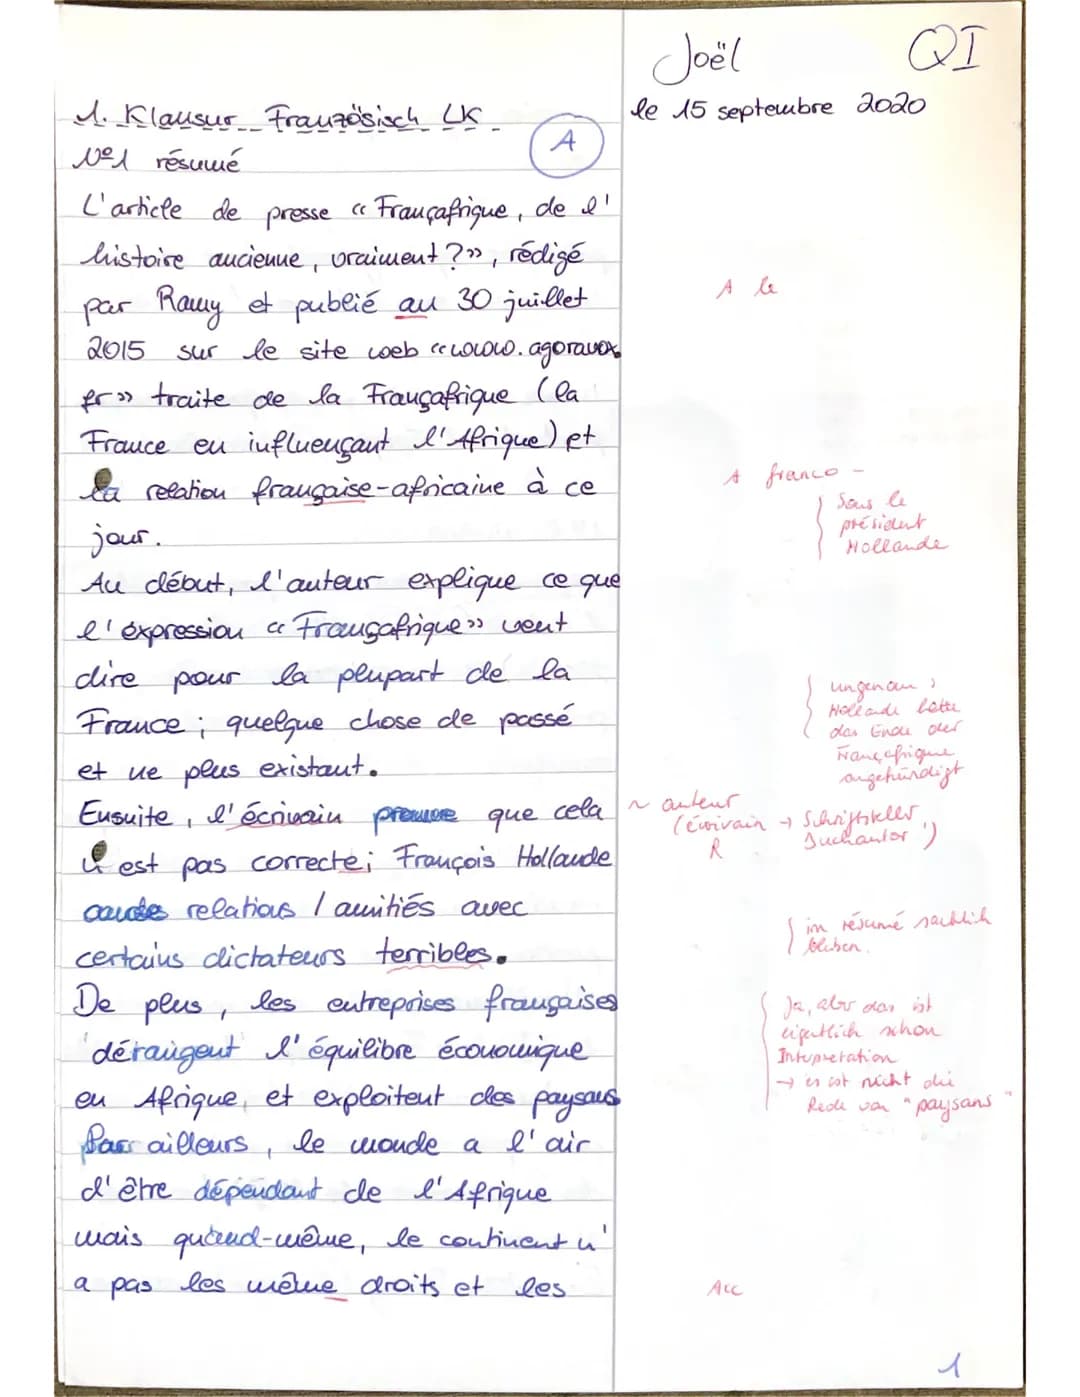 Joël QI
le 15 septembre 2020
1. Klausur Französisch LK
A
N°1 résumé
L'article de presse « Françafrique, de l'
histoire ancienne, vraiment ?», rédigé
par Ramy et publié au 30 juillet
A le
2015 sur le site web «www.agoravox.
fr» traite de la Françafrique (la
France en influençant l'Afrique) et
la relation française-africaine à ce
A franco-
jour.
{ Sous le
président
Hollande
Au début, l'auteur explique ce que
l'éxpression « Françafrique» veut
dire pour la plupart de la
France ; quelque chose de passé
et ne plus existant.
{ ungenau ;
Hollande hatte
das Ende der
Françafrique
angekündigt
Ensuite, l'écrivain prouve que cela
~ auteur
(écrivain → Schriftsteller,
Buchautor !)
R
n'est pas correcte; François Hollande
relations / amitiés avec
certains dictateurs terribles.
{ im résumé sachlich
bleiben.
De plus, les entreprises françaises
dérangent l'équilibre économique
en Afrique, et exploitent des paysans
{ Ja, aber das ist
eigentlich schon
Interpretation
→ es ist nicht die
Rede von "paysans"
Par ailleurs, le monde a l'air
d'être dépendant de l'Afrique
mais quand-même, le continent n'
a pas les même droits et les
Acc
1